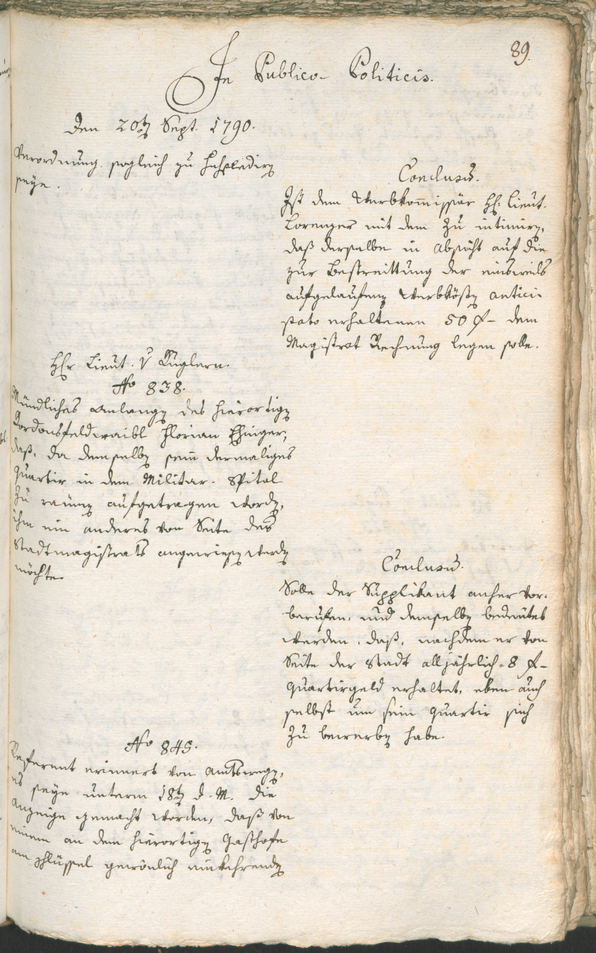 89.
In Publico-Politicis.
Den 20ten Sept. 1790.
Verordnung sogleich zu
seye.
Conclusum.
Ist dem Werbkommissär H: Lieut.
Lorenzer mit dem zu intimiren,
daß derselbe in Absicht auf die
zur Bestreittung der einsweils
aufgelaufenen Werbkösten antici-
pato erhaltenen 50 f- dem
Magistrat Rechnung legen solle.
H: Lieut. v
No 838.
Mündliches Anlangen des hierortigen
Kordonsfeldwaibl Florian Ehinger,
daß, da demselben sein dermaliges
Quartir in dem Militar-Spital
zu raumen aufgetragen worden,
ihm ein anderes von Seite des
Stadtmagistrats angewiesen werden
möchte.
Conclusum.
Solle der Supplikant anher vor-
berufen, und demselben bedeutet
werden, daß, nachdem er von
Seite der Stadt alljährlich 8 f-
Quartirgeld erhaltet, eben auch
selbst um sein Quartir sich
zu bewerben habe.
No 845.
Referent erinnert von Amtswegen,
es seye unterm 18ten d. M. die
Anzeige gemacht worden, daß von
einem an dem hierortigen Gasthofe
am Schlüssel gewönlich einkehrenden